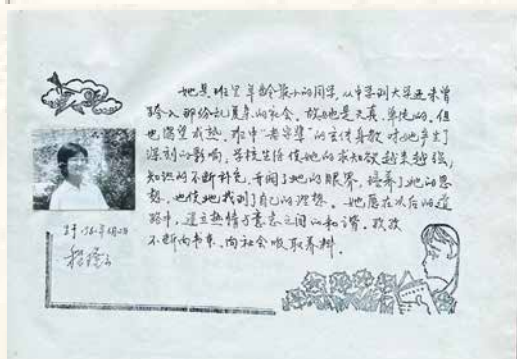 她是班里年龄最小的同学，从中学到大学还未曾
跨入那纷乱复杂的社会，故她是天真、单纯的。但
也渴望成熟。班中“老字辈”的言传身教 对她产生了
深刻的影响，学校生活使她的求知欲越来越强，
知识的不断补充，开阔了她的眼界，培养了她的思
想，也使她找到了自己的理想。她愿在以后的道
路中，建立热情与意志之间的和谐。孜孜
不断向书本、向社会吸取养料。